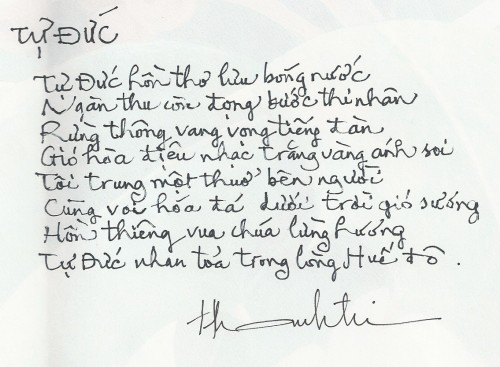 TỰ ĐỨC
Tự Đức hồn thơ lưu bóng nước
Ngàn thu còn đọng bước thi nhân
Rừng thông vang vọng tiếng đàn
Gió hòa điệu nhạc trăng vàng ánh soi
Tôi trung một thuở bên người
Cùng voi hóa đá dưới trời gió sương
Hồn thiêng vua chúa lừng hương
Tự Đức nhân tỏa trong lòng Huế đô.